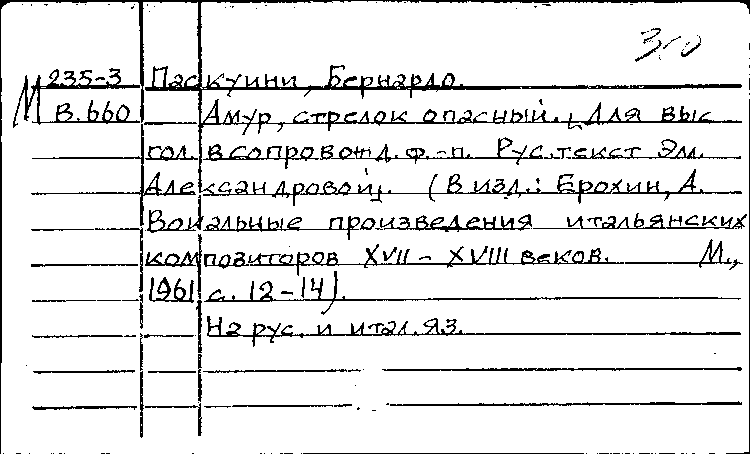 350
М 235-3 Паскуини, Бернардо.
В.660 Амур, стрелок опасный. [Для выс
гол. в сопровожд. ф.-п. Рус. текст Эм.
Александровой]. (В изд.: Ерохин, А.
Вокальные произведения итальянских
композиторов XVII - XVIII веков. М.,
1961 с. 12-14).
На рус. и итал. яз.